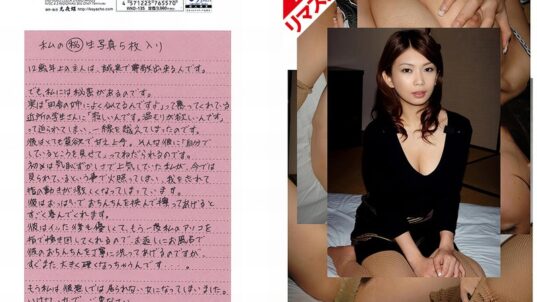 4571225765570
WNID-135
私の㊙生写真5枚入り
12歳年上の主人は、誠実で尊敬出来る人です。
でも、私には秘密があるのです。
実は「田舎の姉によく似てるんですよ」って慕ってくれている
近所の学生さんに「寂しいんです。温もりが欲しいんです」
って迫られてしまい、一線を越えてしまったのです。
彼はとても貪欲で甘え上手。そんな彼に「自分で
しているところを見せて」ってねだられるのです。
初めは気恥ずかしさで上気していた私が、今では
見られているという事で火照ってしまい、我を忘れて
指の動きが激しくなってしまっています。
彼はおっぱいでおちんちんを挟んで擦ってあげると
すごく喜んでくれます。
彼はイッた後も優しくて、もう一度私のアソコを
指で掻き回してくれるので、お返しにお風呂で
彼のおちんちんを丁寧に洗ってあげるのですが、
すぐまた大きく硬くなっちゃうんです・・・。
もう私は彼無しでは居られない女になってしまいました。
リマス